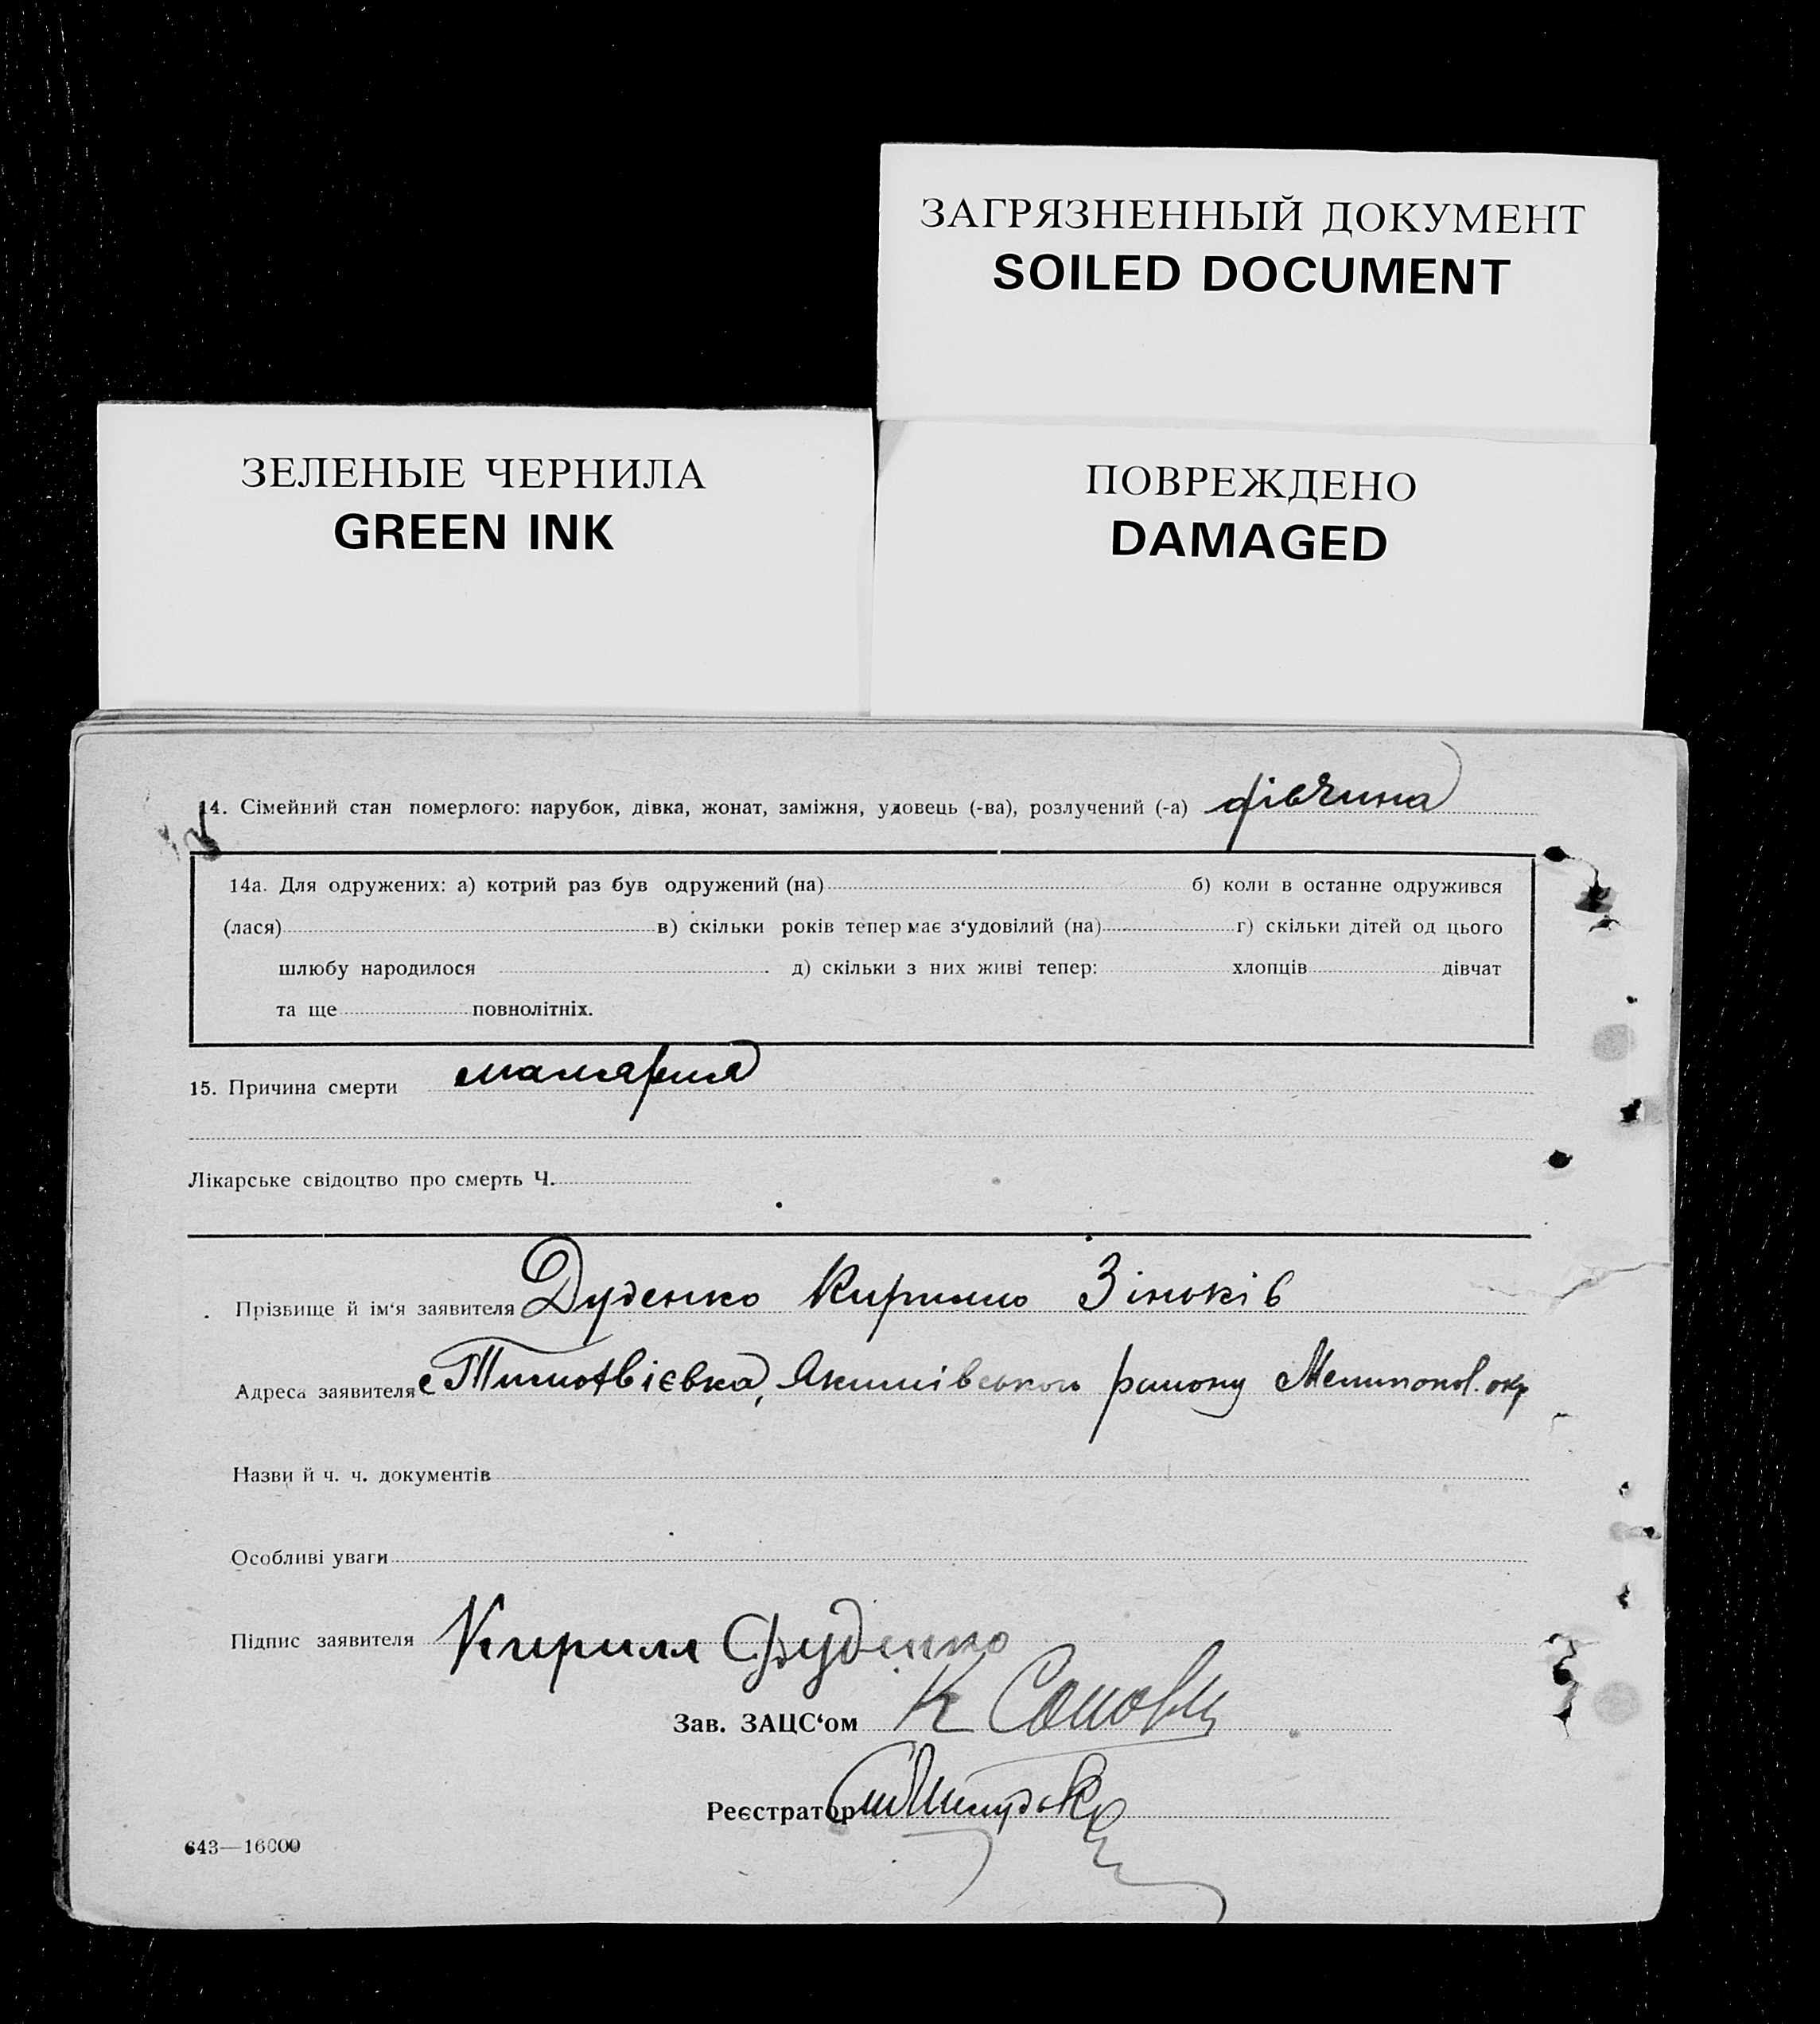 ЗАГРЯЗНЕННЫЙ ДОКУМЕНТ
SOILED DOCUMENT
ЗЕЛЕНЫЕ ЧЕРНИЛА
GREEN INK
ПОВРЕЖДЕНО
DAMAGED
14. Сімейний стан померлого: парубок, дівка, жонат, заміжня, удовець (-ва), розлучений (-а) дівчина
14а. Для одружених: а) котрий раз був одружений (на) б) коли в останнє одружився
(лася) в) скільки років тепер має з‘удовілий (на) г) скільки дітей од цього
шлюбу народилося д) скільки з них живі тепер: хлопців дівчат
та ще повнолітніх.
15. Причина смерти малярия
Лікарське свідоцтво про смерть Ч.
Прізвище й ім‘я заявителя Дуденко Кирило Зіньків
Адреса заявителя с Якимівського району Мелитопол. окр
Назви й ч. ч. документів
Особливі уваги
Підпис заявителя Кирилл Дуденко
Зав. ЗАЦС‘ом К
Реєстратор
643—16000